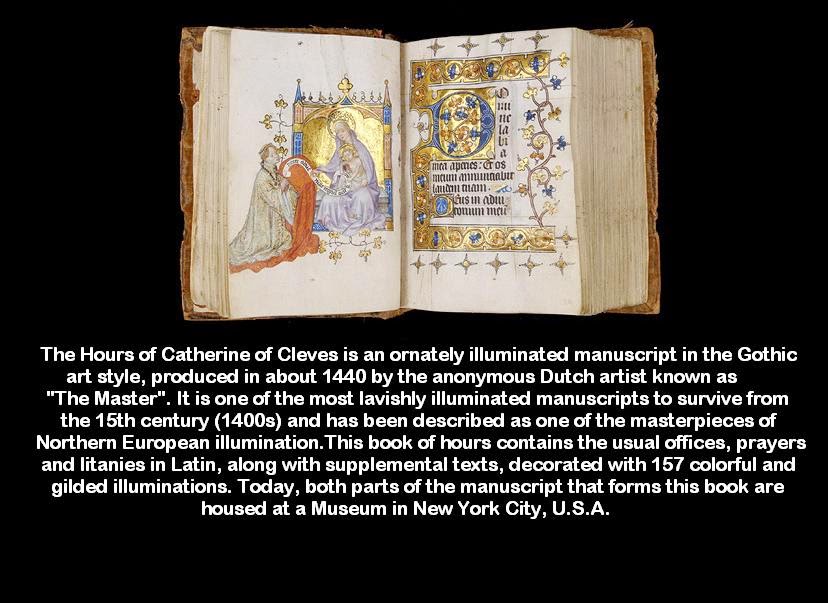 O
mi
ne
la
bi
a
mea aperies: Et os
meum annuntiabit
laudem tuam.
Deus in adiu
torium meu
The Hours of Catherine of Cleves is an ornately illuminated manuscript in the Gothic
art style, produced in about 1440 by the anonymous Dutch artist known as
"The Master". It is one of the most lavishly illuminated manuscripts to survive from
the 15th century (1400s) and has been described as one of the masterpieces of
Northern European illumination.This book of hours contains the usual offices, prayers
and litanies in Latin, along with supplemental texts, decorated with 157 colorful and
gilded illuminations. Today, both parts of the manuscript that forms this book are
housed at a Museum in New York City, U.S.A.